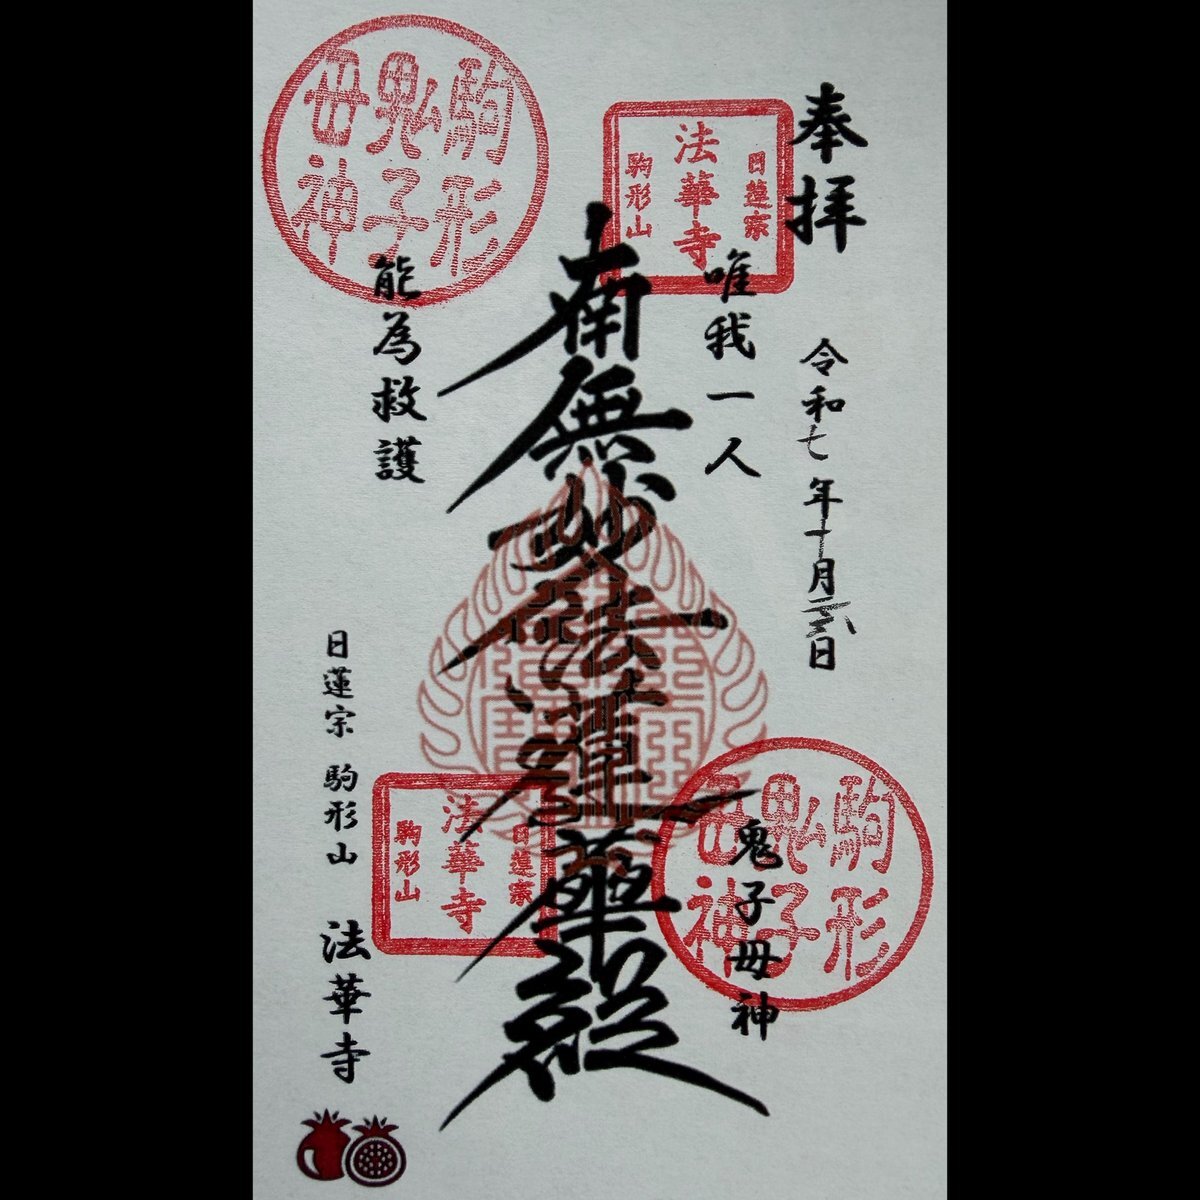 奉拝
令和七年十月二六日
日蓮宗
法華寺
駒形山
唯我一人
南無妙法蓮華経
駒形
鬼子
母神
能為救護
鬼子母神
駒形
鬼子
母神
日蓮宗
法華寺
駒形山
日蓮宗 駒形山 法華寺